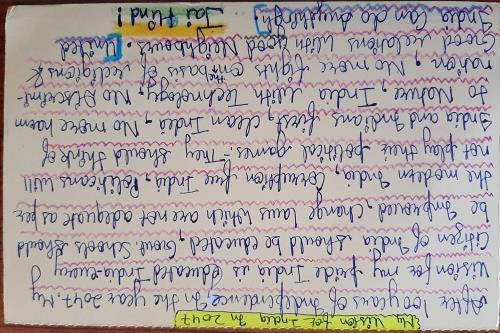 My Vision for India In 2047
After 100 years of Independence, In the year 2047. My
Vision for my pride India is educated India. every
Citizen of India should be educated, Govt. Schools should
be Improved, change laws which are not adequate as per
the modern India, Corruption free India, Politicans will
not play their political games. They should think of
India and Indians first, clean India, No more harm
to Nature, India with Technology, No Discremi-
nation, No more fights on the basis of religions &
Good relations with good Neighbours. [United
India Can do Anything].
Jai Hind!